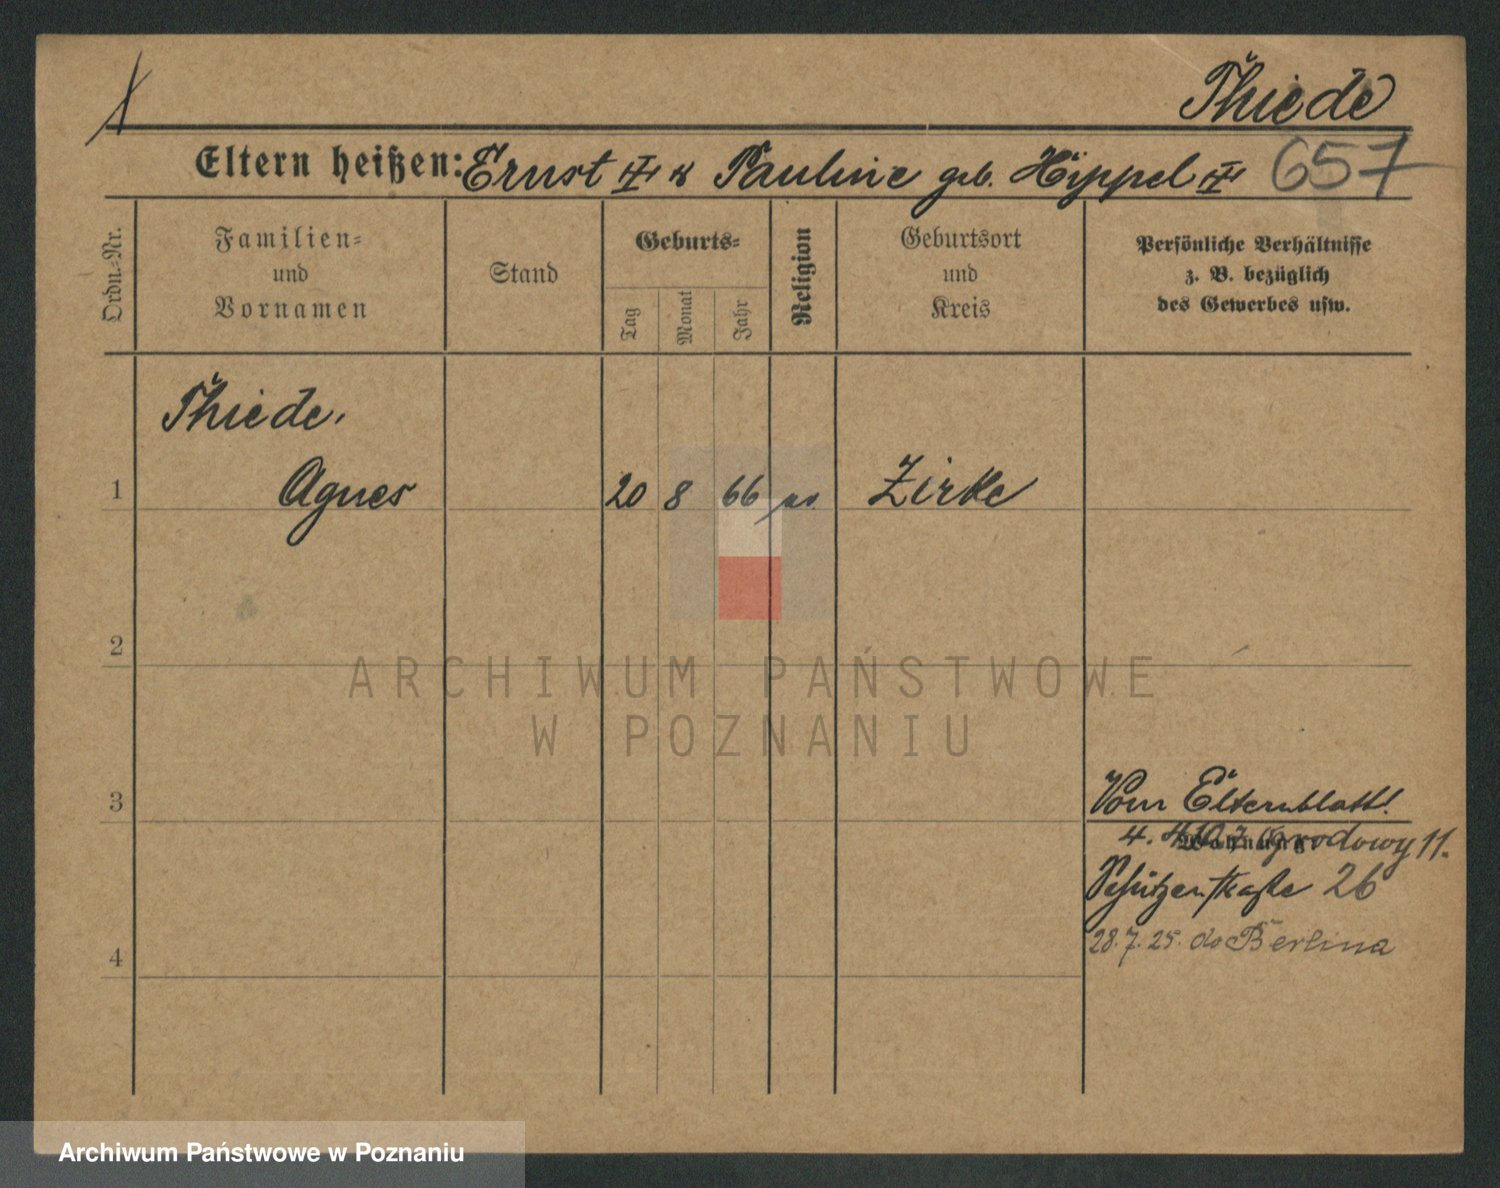 Thiede
Eltern heißen: Ernst u. Pauline geb. Hippel 657
Ordn.-Nr.
Familien-
und
Vornamen
Stand
Geburts-
Tag
Monat
Jahr
Religion
Geburtsort
und
Kreis
Persönliche Verhältnisse
z. B. bezüglich
des Gewerbes usw.
Thiede,
1 Agnes 20 8 66 Zirke
2
3
Vom Elternblatt!
Wohnung:
4. Grodowy 11.
Schützenstraße 26
28.7.25. do Berlina
4
ARCHIWUM PAŃSTWOWE
W POZNANIU
Archiwum Państwowe w Poznaniu